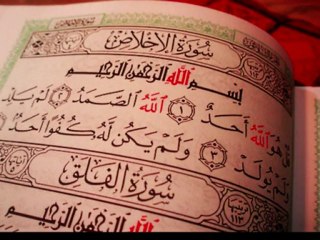 سورة الإخلاص
بِسْمِ اللَّهِ الرَّحْمَٰنِ الرَّحِيمِ
قُلْ هُوَ اللَّهُ أَحَدٌ ١ اللَّهُ الصَّمَدُ ٢ لَمْ يَلِدْ
وَلَمْ يُولَدْ ٣ وَلَمْ يَكُن لَّهُ كُفُوًا أَحَدٌ
سورة الفلق
بِسْمِ اللَّهِ الرَّحْمَٰنِ الرَّحِيمِ